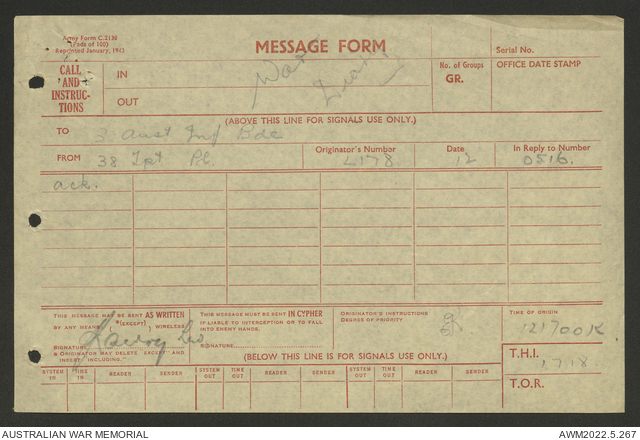 Army Form C.2130
(Pads of 100)
Reprinted January, 1943
MESSAGE FORM
Serial No.
CALL
AND
INSTRUC-
TIONS
IN
OUT
War Diary
No. of Groups
GR.
OFFICE DATE STAMP
(ABOVE THIS LINE FOR SIGNALS USE ONLY.)
TO 3 Aust Inf Bde
FROM 38 Tpt Pl.
Originator's Number
L178
Date
12
In Reply to Number
0516.
ack.
THIS MESSAGE MAY BE SENT AS WRITTEN
BY ANY MEANS (EXCEPT) WIRELESS
SIGNATURE
ORIGINATOR MAY DELETE "EXCEPT" AND
INSERT "INCLUDING."
THIS MESSAGE MUST BE SENT IN CYPHER
IF LIABLE TO INTERCEPTION OR TO FALL
INTO ENEMY HANDS.
SIGNATURE
ORIGINATOR'S INSTRUCTIONS
DEGREE OF PRIORITY
TIME OF ORIGIN
121700K
(BELOW THIS LINE IS FOR SIGNALS USE ONLY.)
T.H.I.
1718
T.O.R.
SYSTEM IN TIME IN READER SENDER SYSTEM OUT TIME OUT READER SENDER SYSTEM OUT TIME OUT READER SENDER
AUSTRALIAN WAR MEMORIAL
AWM2022.5.267